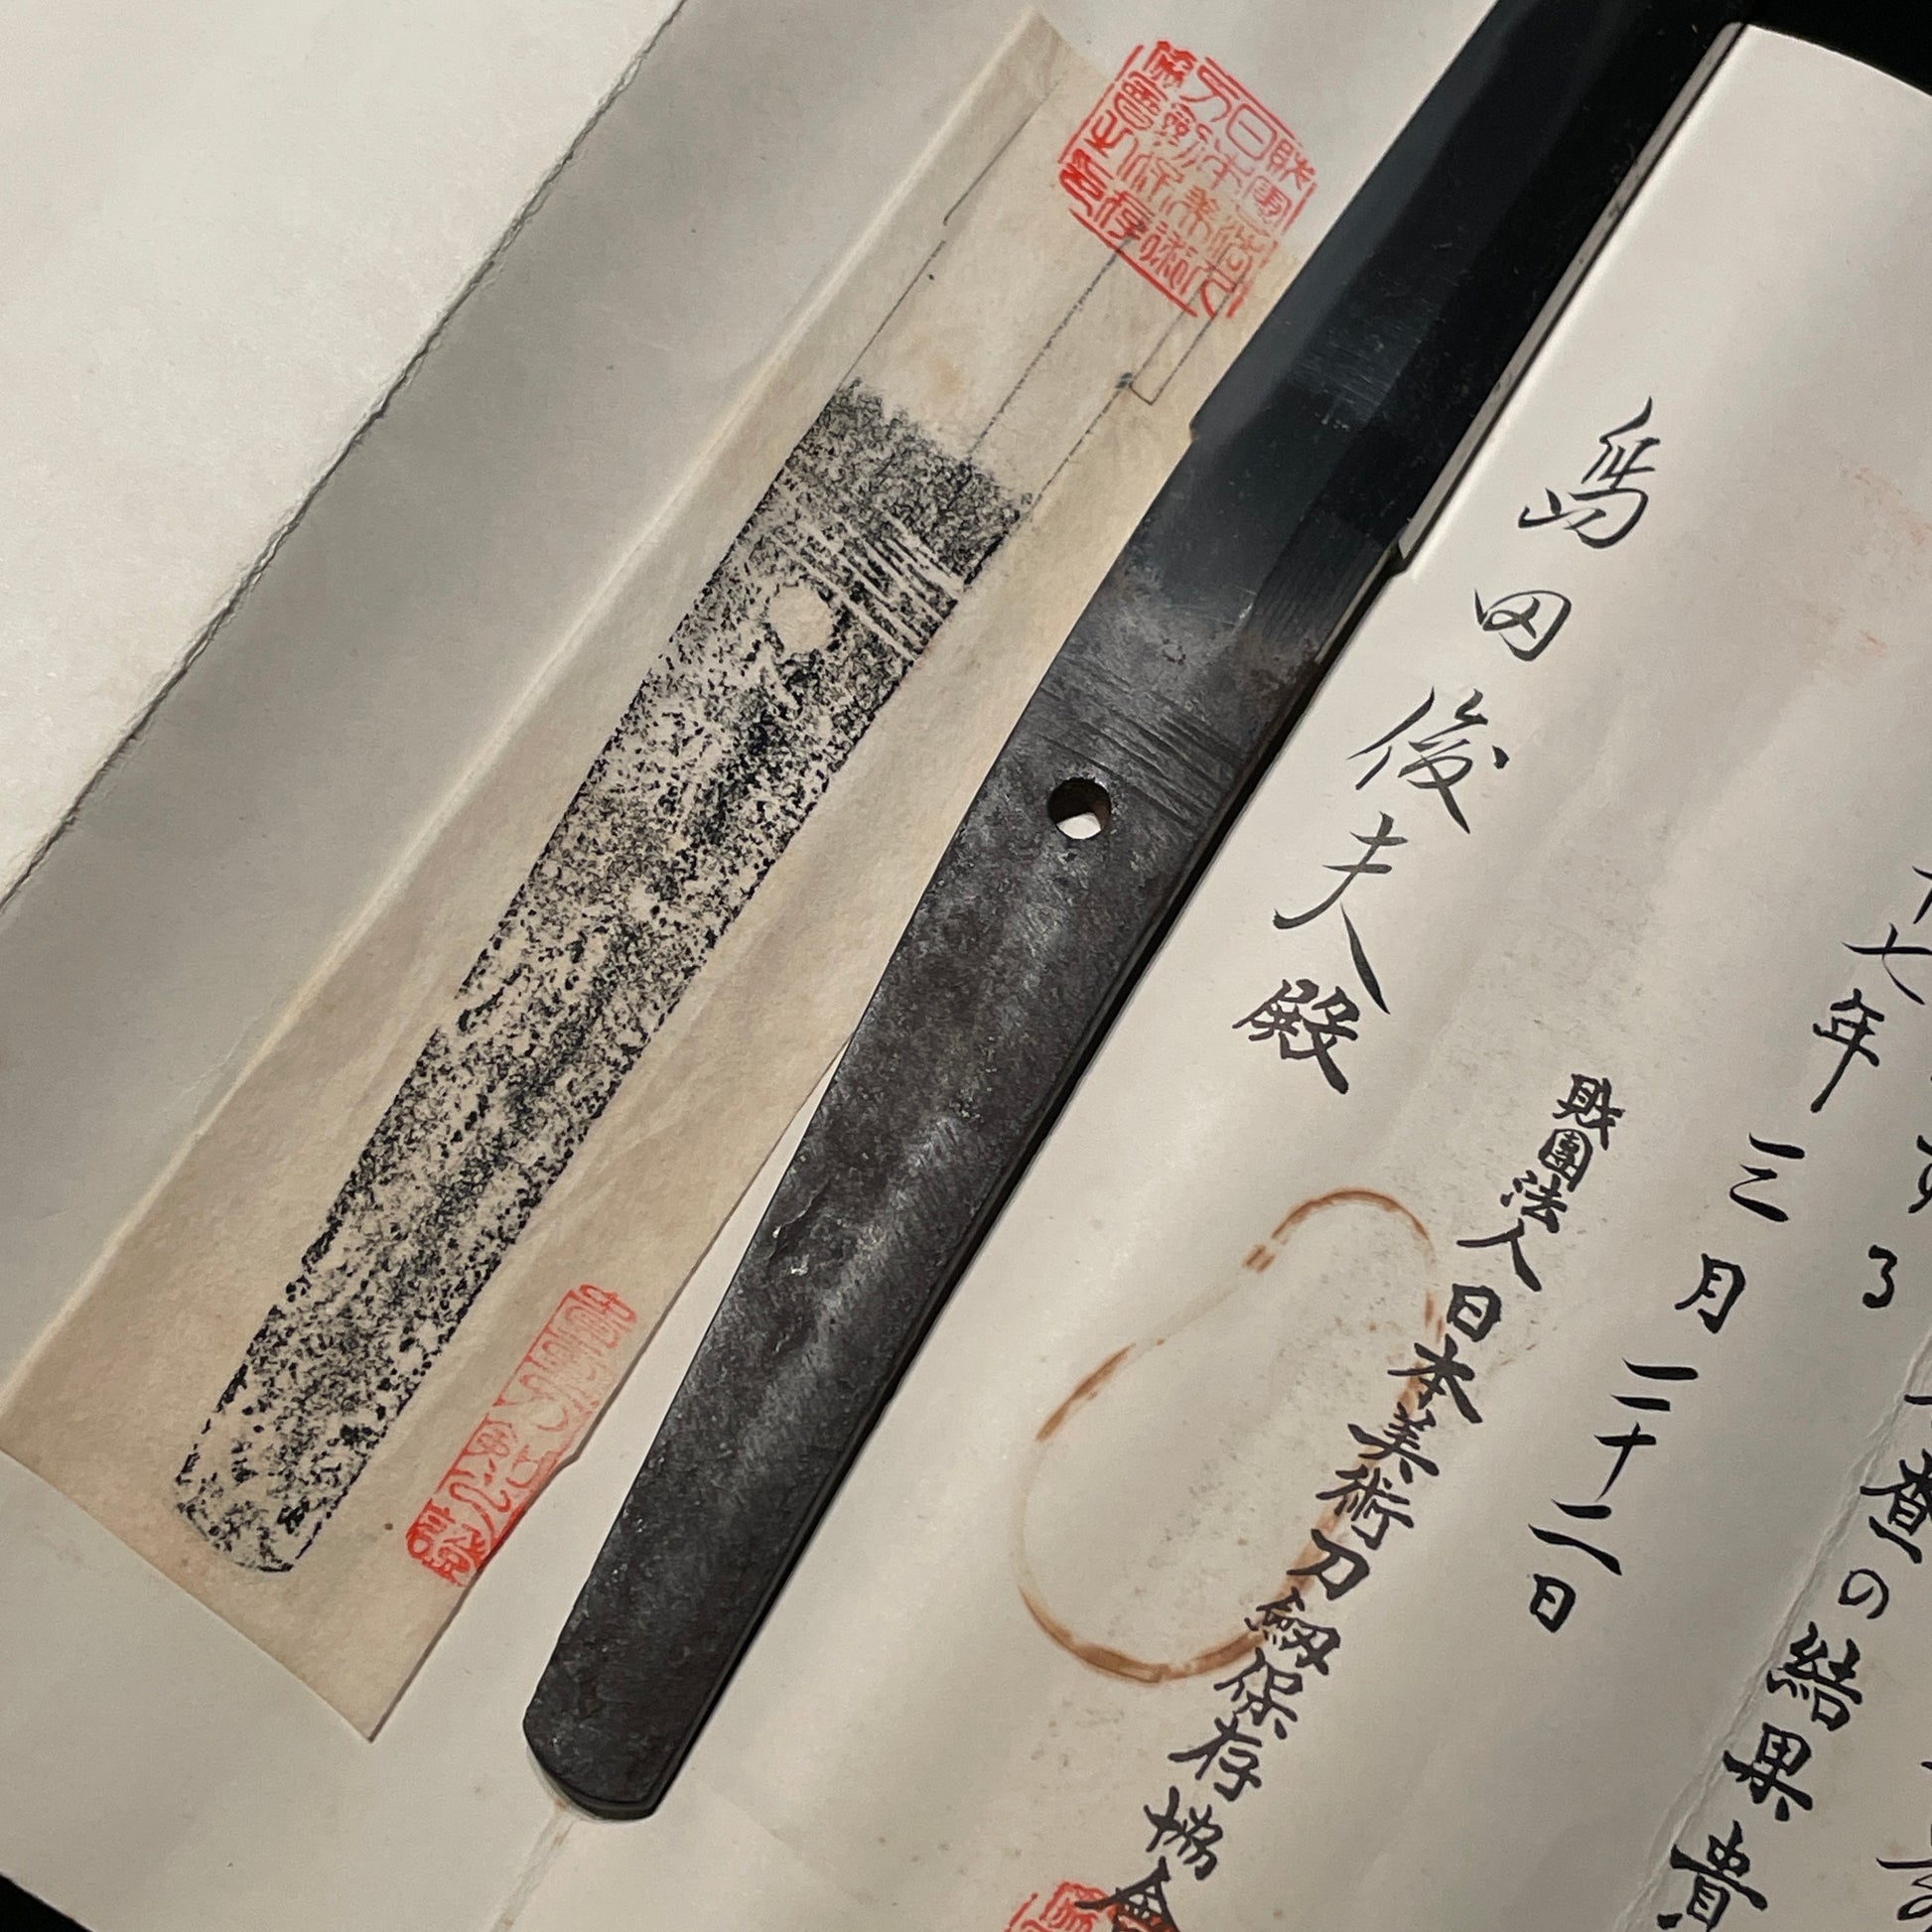 査の結果貴
する
十七年三月二十二日
島田俊夫殿
財團法人日本美術刀劔保存協會
財團法人
日本美術
刀劔保存
協會之印